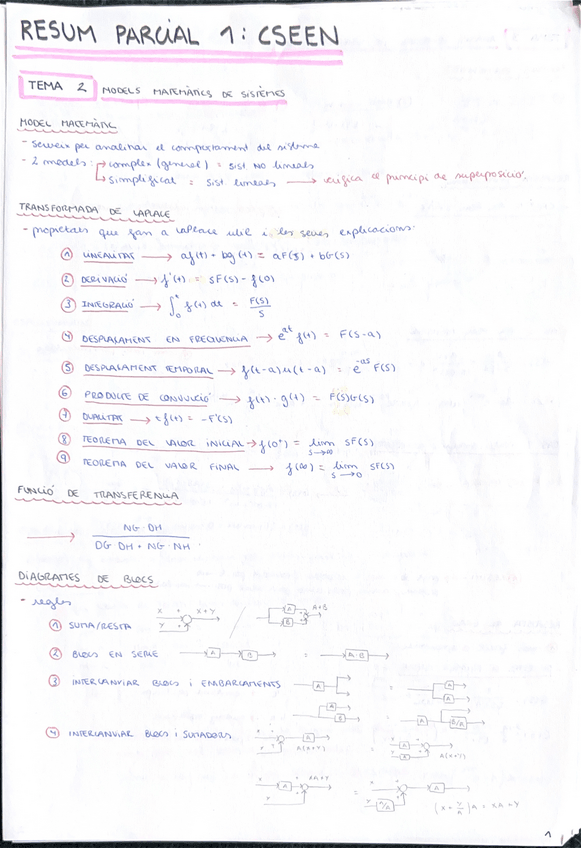 RESUM PARCIAL 1: CSEEN
TEMA 2 MODELS MATEMÀTICS DE SISTEMES
MODEL MATEMÀTIC
- Serveix per analitzar el comportament del sistema
- 2 models: → complex (general) = sist. NO lineals
→ simplificat = sist. lineals → verifica el principi de superposició.
TRANSFORMADA DE LAPLACE
- propietats que fan a Laplace útil i les seves explicacions:
① LINEALITAT → af(t) + bg(t) = aF(s) + bG(s)
② DERIVACIÓ → f'(t) = sF(s) - f(0)
③ INTEGRACIÓ → ∫₀ᵗ f(t) dt = F(s)/s
④ DESPLAÇAMENT EN FREQÜÈNCIA → e^at f(t) = F(s-a)
⑤ DESPLAÇAMENT TEMPORAL → f(t-a)u(t-a) = e^-as F(s)
⑥ PRODUCTE DE CONVOLUCIÓ → f(t) · g(t) = F(s)G(s)
⑦ DUALITAT → t f(t) = -F'(s)
⑧ TEOREMA DEL VALOR INICIAL → f(0⁺) = lim s→∞ SF(s)
⑨ TEOREMA DEL VALOR FINAL → f(∞) = lim s→0 SF(s)
FUNCIÓ DE TRANSFERÈNCIA
→ NG·DH / DG·DH + NG·NH
DIAGRAMES DE BLOCS
- regles
① SUMA/RESTA X + X+Y Y + / A B + + A+B
② BLOCS EN SÈRIE → A → B → = → A·B →
③ INTERCANVIAR BLOCS I EMBARCAMENTS A = A A
A B = A B/A
④ INTERCANVIAR BLOCS I SUMADORS X + Y + A A(X+Y) = X A + Y A + A(X+Y)
X A + XA+Y Y + = X + Y 1/A + A (X + Y/A) A = XA + Y
1